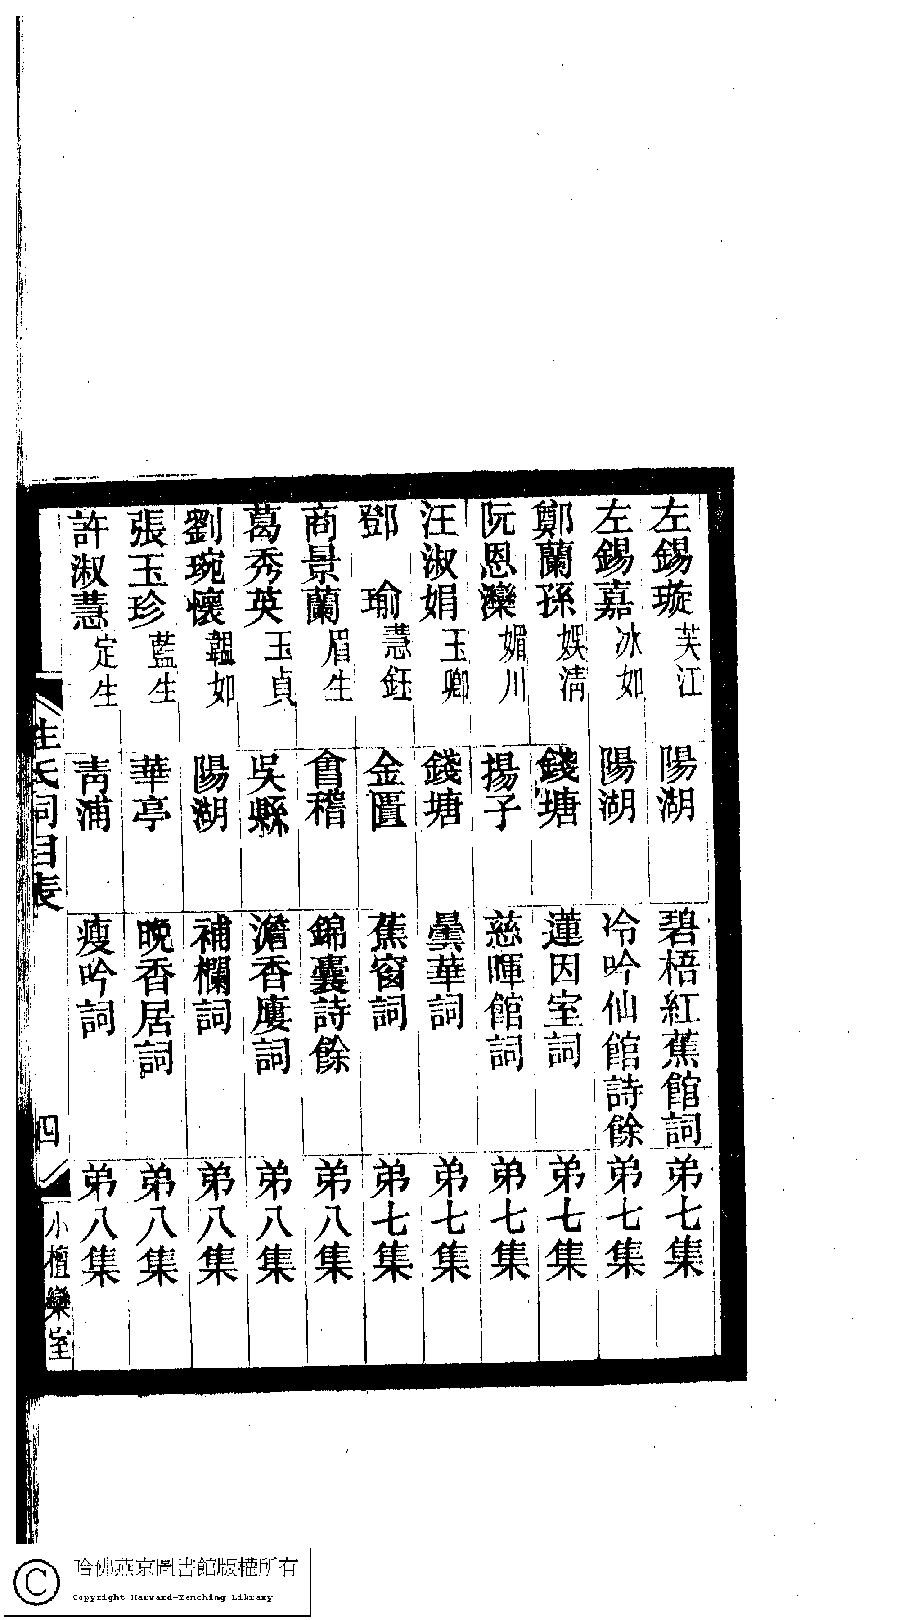 左錫璇 芙江 陽湖 碧梧紅蕉館詞 弟七集
左錫嘉 冰如 陽湖 冷吟仙館詩餘 弟七集
鄭蘭孫 娛淸 錢塘 蓮因室詞 弟七集
阮恩灤 媚川 揚子 慈暉館詞 弟七集
汪淑娟 玉卿 錢塘 曇華詞 弟七集
鄧瑜 慧鈺 金匱 蕉窗詞 弟七集
商景蘭 眉生 會稽 錦囊詩餘 弟八集
葛秀英 玉貞 吳縣 澹香廔詞 弟八集
劉琬懷 韞如 陽湖 補欄詞 弟八集
張玉珍 藍生 華亭 晚香居詞 弟八集
許淑慧 定生 靑浦 瘦吟詞 弟八集
氏詞目表 四 小檀欒室
哈佛燕京圖書館版權所有
Copyright Harvard-Yenching Library